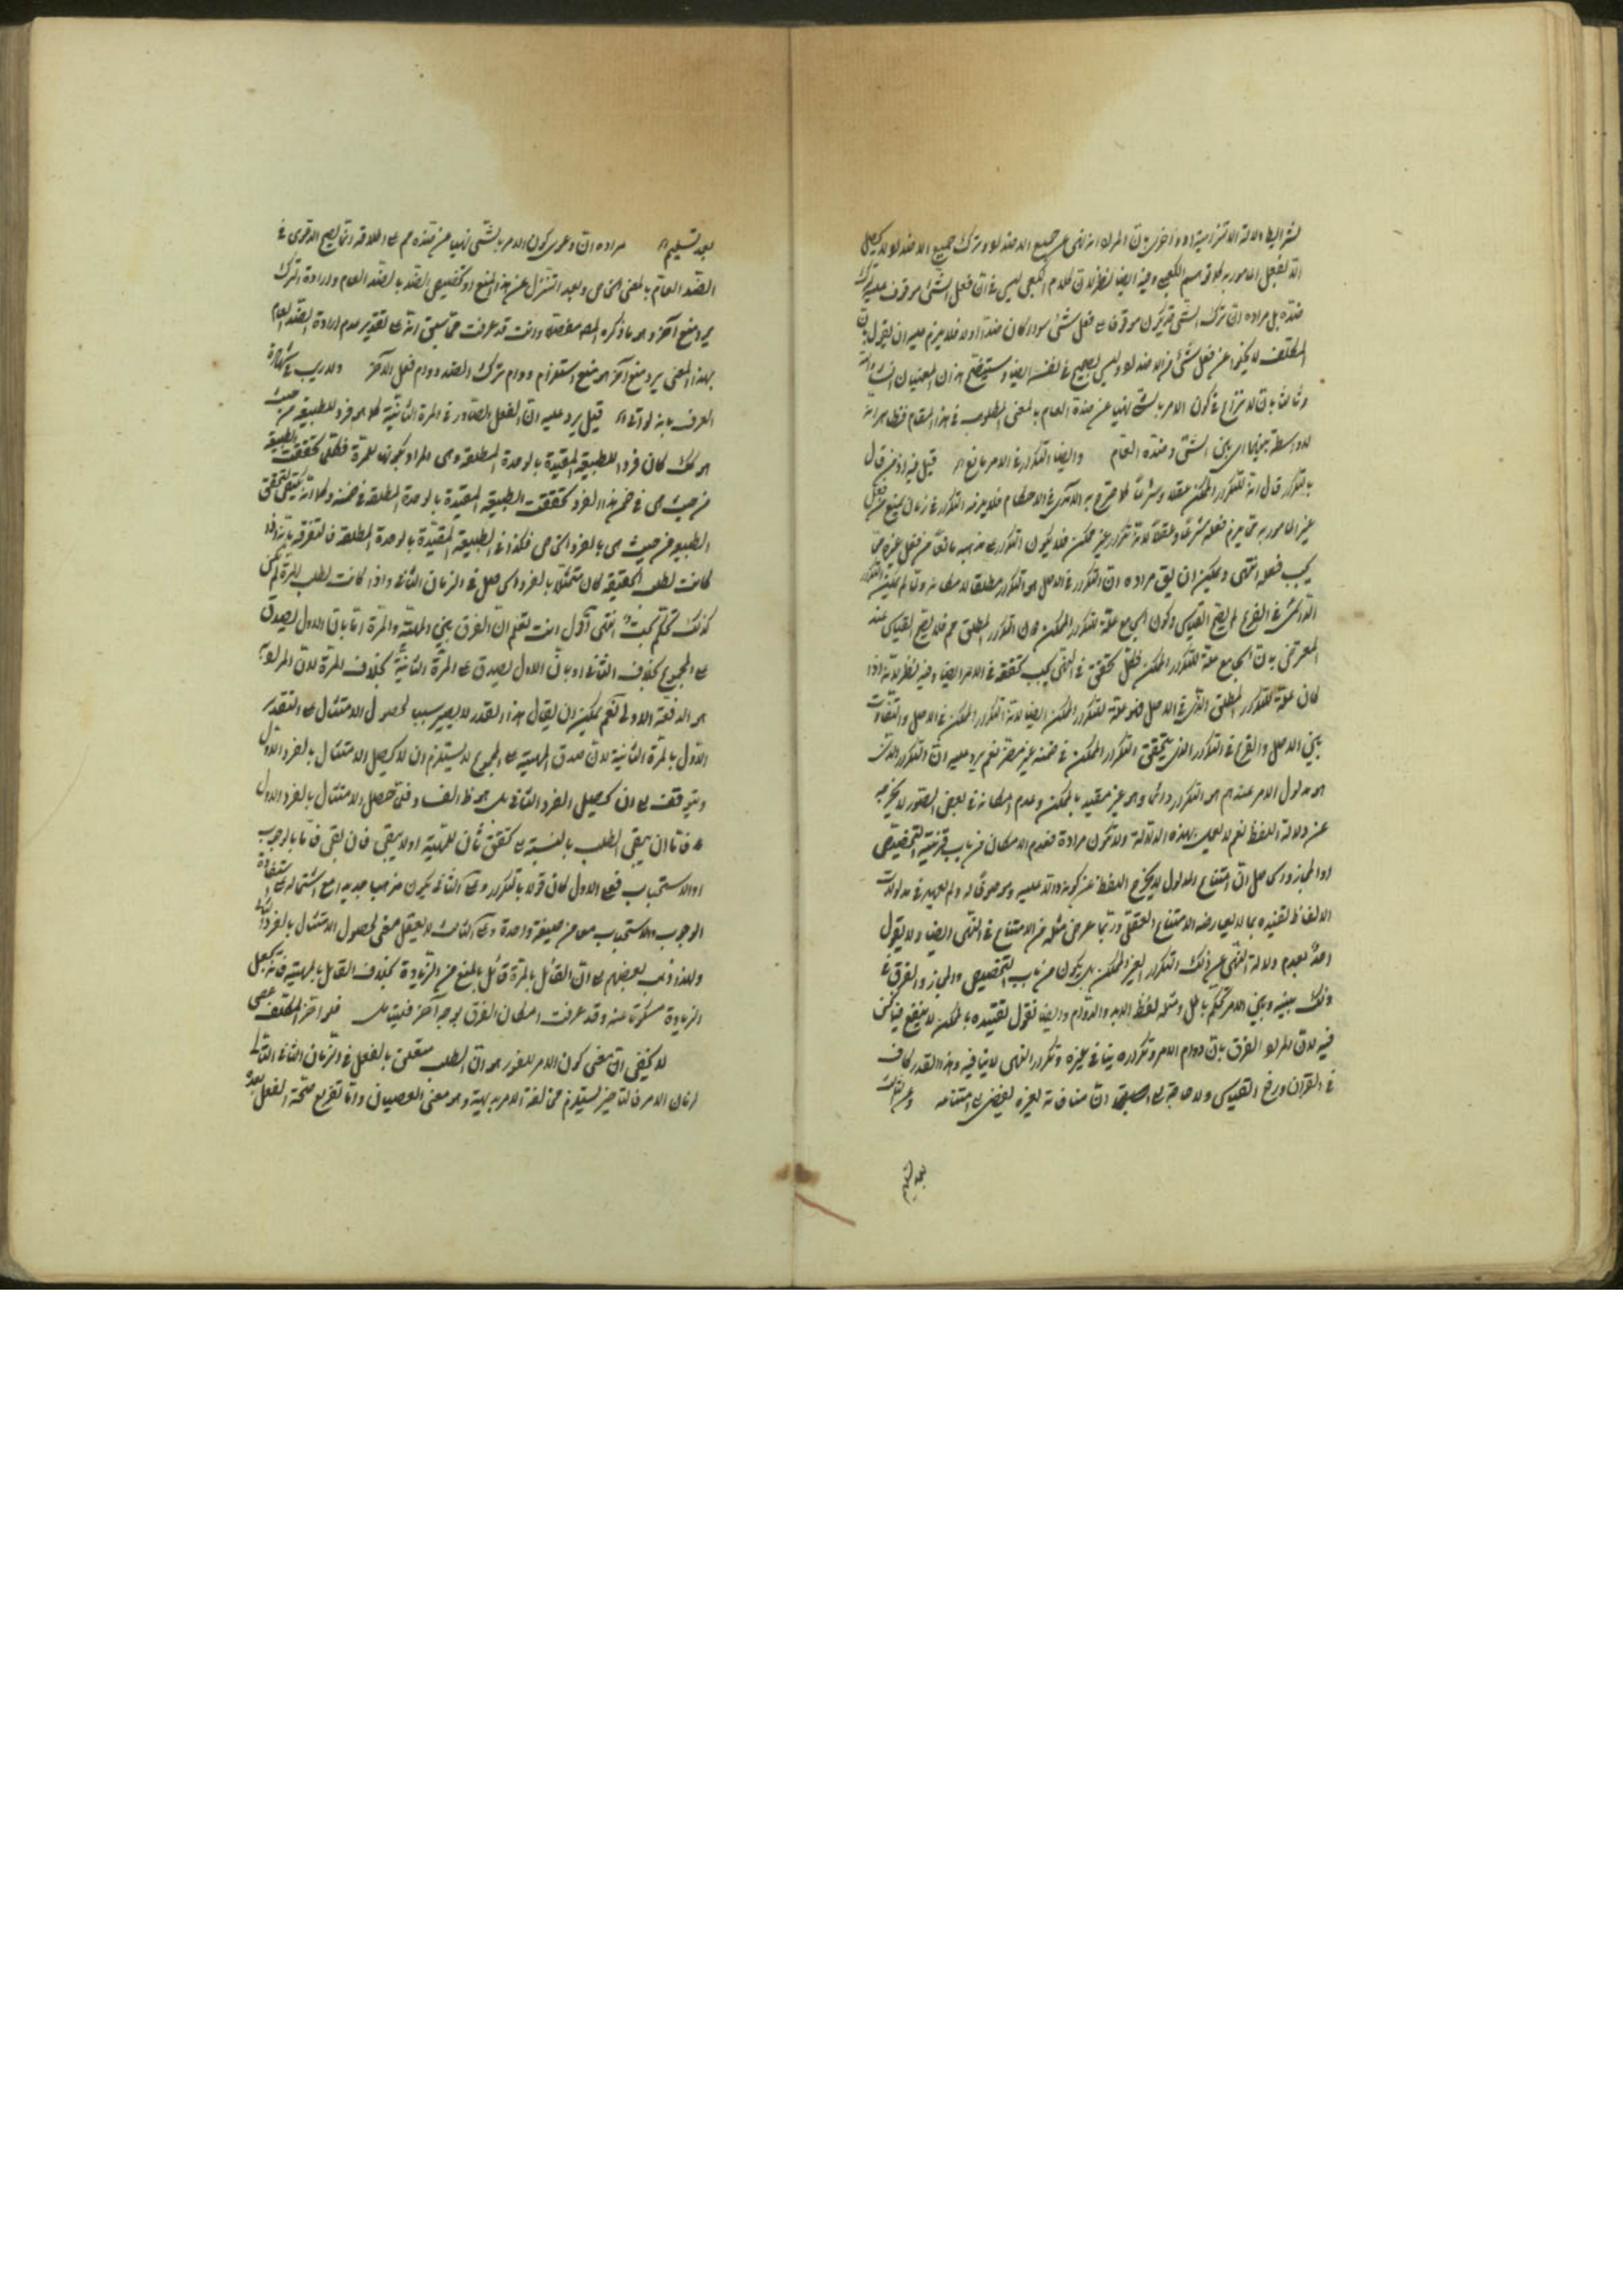 لشرايط الدلالة الالتزامية او واخرى بان المراد انه نهى عن جميع الاضداد وترك جميع الاضداد لا يحصل
الا بفعل المامور به كما توهم الكعبي وفيه ايضا نظر لان كلام الكعبي ليس في ان فعل الشئ موقوف عليه ترك
ضده بل مراده ان ترك الشئ قد يكون موقوفا على فعل شئ سواء كان ضدا او لا فلا يلزم عليه ان يقول بان
المكلف لا يخلو عن فعل شئ من الاضداد وليس بصحيح في نفسه ايضا وستطلع هذان المعنيان ان شاء الله
وثالثا بان لا نزاع في كون الامر بالشئ نهيا عن ضده العام بالمعنى المطلوب في هذا المقام فظاهر انه
لا واسطة بينهما اي بين الشئ وضده العام وايضا التكرار في الامر مانع اه قيل فيه اذ من قال
بالتكرار قال انه للتكرار الممكن عقلا وشرعا كما صرح به الآمدي في الاحكام فلا يلزمه التكرار في زمان يمنع من فعل
غير المامور به مما يلزم فعله شرعا وعقلا لانه تكرار غير ممكن فلا يكون التكرار على مذهبه مانعا من فعل غيره مما
يجب فعله انتهى ويمكن ان يق مراده ان التكرار في الاصل هو التكرار مطلقا لامكانه ولما لم يمكن التكرار
الدائمي في الفرع لم يصح القياس وكون الجامع علة للتكرار الممكن دون التكرار المطلق مم فلا يصح القياس عند
المعترض بان الجامع علة للتكرار الممكن فكل تحقق في النهي يجب تحققه في الامر ايضا وفيه نظر لانه اذا
كان علة للتكرار المطلق الذي في الاصل فهو علة للتكرار الممكن ايضا لانه التكرار الممكن في الاصل والتفاوت
بين الاصل والفرع في التكرار الذي يتحقق التكرار الممكن في ضمنه غير مضر نعم يرد عليه ان التكرار الذي
هو مدلول الامر عندهم هو التكرار دائما وهو غير مقيد بالممكن وعدم امكانه في بعض الصور لا يخرجه
عن دلالة اللفظ نعم لا يعمل بهذه الدلالة ولا تكون مرادة فعدم الامكان من باب قرينة التخصيص
او المجاز والحاصل ان امتناع المدلول لا يخرج اللفظ عن كونه دالا عليه وموضوعا له ولم يعهد في مدلولات
الالفاظ تقييده بما لا يعارضه الامتناع العقلي وربما عرض مثله من الامتناع في النهي ايضا ولا يقول
احد بعدم دلالة النهي عن ذلك التكرار الغير الممكن بل يكون من باب التخصيص والمجاز والفرق في
ذلك بينه وبين الامر تحكم باطل ومثله لفظ الابد والدوام وايضا نقول تقييده بالممكن لا ينفع فيما نحن
فيه لان المراد الفرق بان دوام الامر وتكراره ينافي غيره وتكرار النهي لا ينافيه وهذا القدر كاف
في القران ورفع القياس ولا حاجة الى ان منافاته لغيره يفضي الى امتناعه وعن الثالث
بعد تسليم
بعد تسليم اه مراده ان دعوى كون الامر بالشئ نهيا عن ضده مم على اطلاقه انما يصح الدعوى في
الضد العام بالمعنى الخاص وبعد التنزل عن هذا المنع او تخصيص الضد بالضد العام وارادة الترك
يرد منع آخر وهو ما ذكره المصـ مفصلا وانت قد عرفت مما سبق انه على تقدير عدم ارادة الضد العام
بهذا المعنى يرد منع آخر هو منع استلزام دوام ترك الضد دوام فعل الآخر ولا ريب في شهادة
العرف بانه لو اتى اه قيل يرد عليه ان الفعل الصادر في المرة الثانية كما هو فرد للطبيعة من حيث
هو كك كان فردا للطبيعة المقيدة بالوحدة المطلقة وهي المراد بكونها للمرة فكلما تحققت الطبيعة
من حيث هي في ضمن هذا الفرد تحققت الطبيعة المقيدة بالوحدة المطلقة في ضمنه وكما انه يكفي لتحقق
الطبيعة من حيث هي بالفرد الخاص فكذا في الطبيعة المقيدة بالوحدة المطلقة فالتفرقة بانه اذا
كانت لطلب الحقيقة كان ممتثلا بالفرد الحاصل في الزمان الثاني واذا كانت لطلب المرة لم يكن
كذلك تحكم بحت انتهى اقول انت تعلم ان الفرق بين المهية والمرة اما بان الاول يصدق
على المجموع بخلاف الثاني او بان الاول يصدق على المرة الثانية بخلاف المرة لان المراد بها
هو الدفعة الاولى نعم يمكن ان يقال هذا القدر لا يصير سببا لحصول الامتثال على التقدير
الاول بالمرة الثانية لان صدق المهية على المجموع لا يستلزم ان لا يحصل الامتثال بالفرد الاول
ويتوقف على ان يحصل الفرد الثاني بل هو ظ الفساد فمتى حصل الامتثال بالفرد الاول
فاما ان يبقى الطلب بالنسبة الى تحقق ثان للمهية او لا يبقى فان بقي فاما بالوجوب
او الاستحباب فعلى الاول كان قولا بالتكرار وعلى الثاني يكون مذهبا جديدا مع اشتماله على استفادة
الوجوب والاستحباب معا من صيغة واحدة وعلى الثالث لا يعقل معنى لحصول الامتثال بالفرد الثاني
ولهذا ذهب بعضهم الى ان القائل بالمرة قائل بالمنع من الزيادة بخلاف القائل بالمهية فانه يجعل
الزيادة مسكوتا عنه وقد عرفت امكان الفرق بوجه آخر فليتامل فلو اخر المكلف عصى
لا يخفى ان معنى كون الامر للفور هو ان الطلب متعلق بالفعل في الزمان الثاني التالي
لزمان الامر فالتاخير يستلزم مخالفة الامر بديهة وهو معنى العصيان واما تفريع صحة الفعل بعده